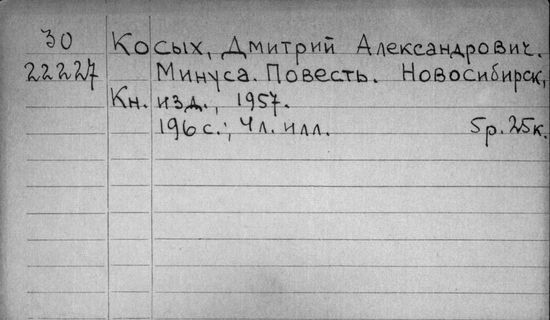 30 Косых, Дмитрий Александрович.
22227 Минуса. Повесть. Новосибирск,
Кн. изд., 1957.
196 с.; 4 л. илл. 5р. 25к.